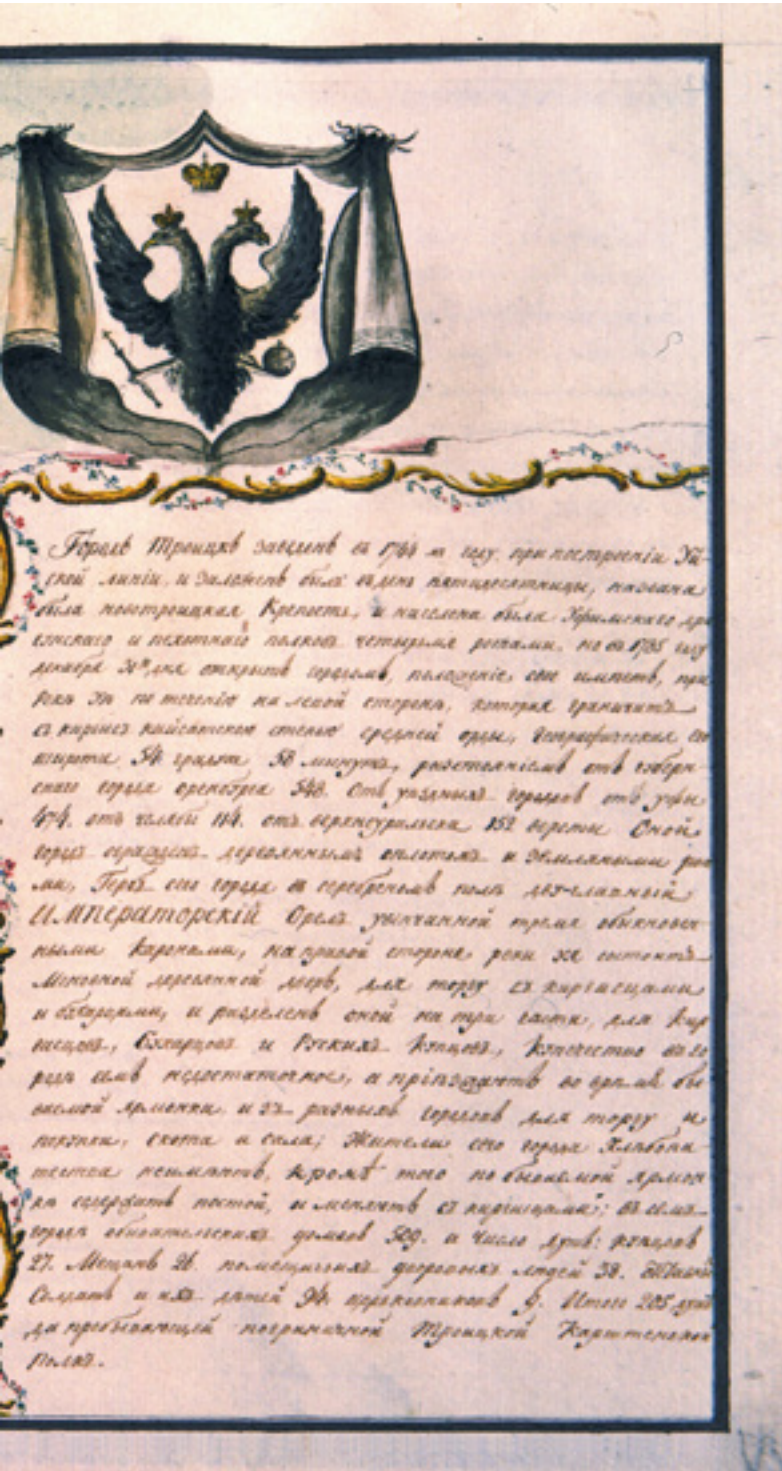 Городъ Троицкъ заведенъ въ году при построеніи Уй-
ской линіи, и заложенъ былъ въ день пятидесятницы, названа
была новотроицкая Крепость, и населена была Уфимскаго дра
гунскаго и пехотнаго полковъ четырьмя ротами, но въ 1785 году
декабря дня открытъ городомъ, положеніе свое имѣетъ, при
реки Уи по теченію на левой сторонѣ, которая граничитъ
съ киргисъ кайсатскою степью средней орды, Географическая его
широта 54 градуса 58 минутъ, разстояніемъ отъ губерн-
скаго города оренбурга 548. Отъ уездныхъ городовъ отъ уфы
474. отъ челябы 114. отъ верхнеуральска 152 версты Оной
городъ деревяннымъ оплотомъ и земляными
ми, Гербъ сего города въ серебреномъ полѣ двуглавный
ИМПЕРАТОРСКІЙ Орелъ увѣнчанной тремя обыкновен-
ными Каронами, на правой стороне реки уя состоитъ
Меновной деревянной дворъ, для торгу съ киргисцами
и бухарцами, и разделенъ оной на три части, для Кир
гисцовъ, Бухарцовъ и Рускихъ Купцовъ, Купечество въ го
роде семъ недостаточное, а пріезжаютъ во время бы
ваемой ярмонки изъ разныхъ городовъ для торгу и
покупки, скота и сала; Жители сего города Хлебопа-
шества неимеютъ, кромѣ того по бываемой ярмон-
ке содержатъ постой, и менаютъ съ киргисцами; въ семъ
городе обывательскихъ домовъ 509. а число душъ: купцовъ
27. Мещанъ 26. помещичихъ дворовыхъ людей 38.
Солдатъ и ихъ детей 94. церковниковъ 9. Итого 205 душъ
да пребывающей пограничной Троицкой
Полкъ.